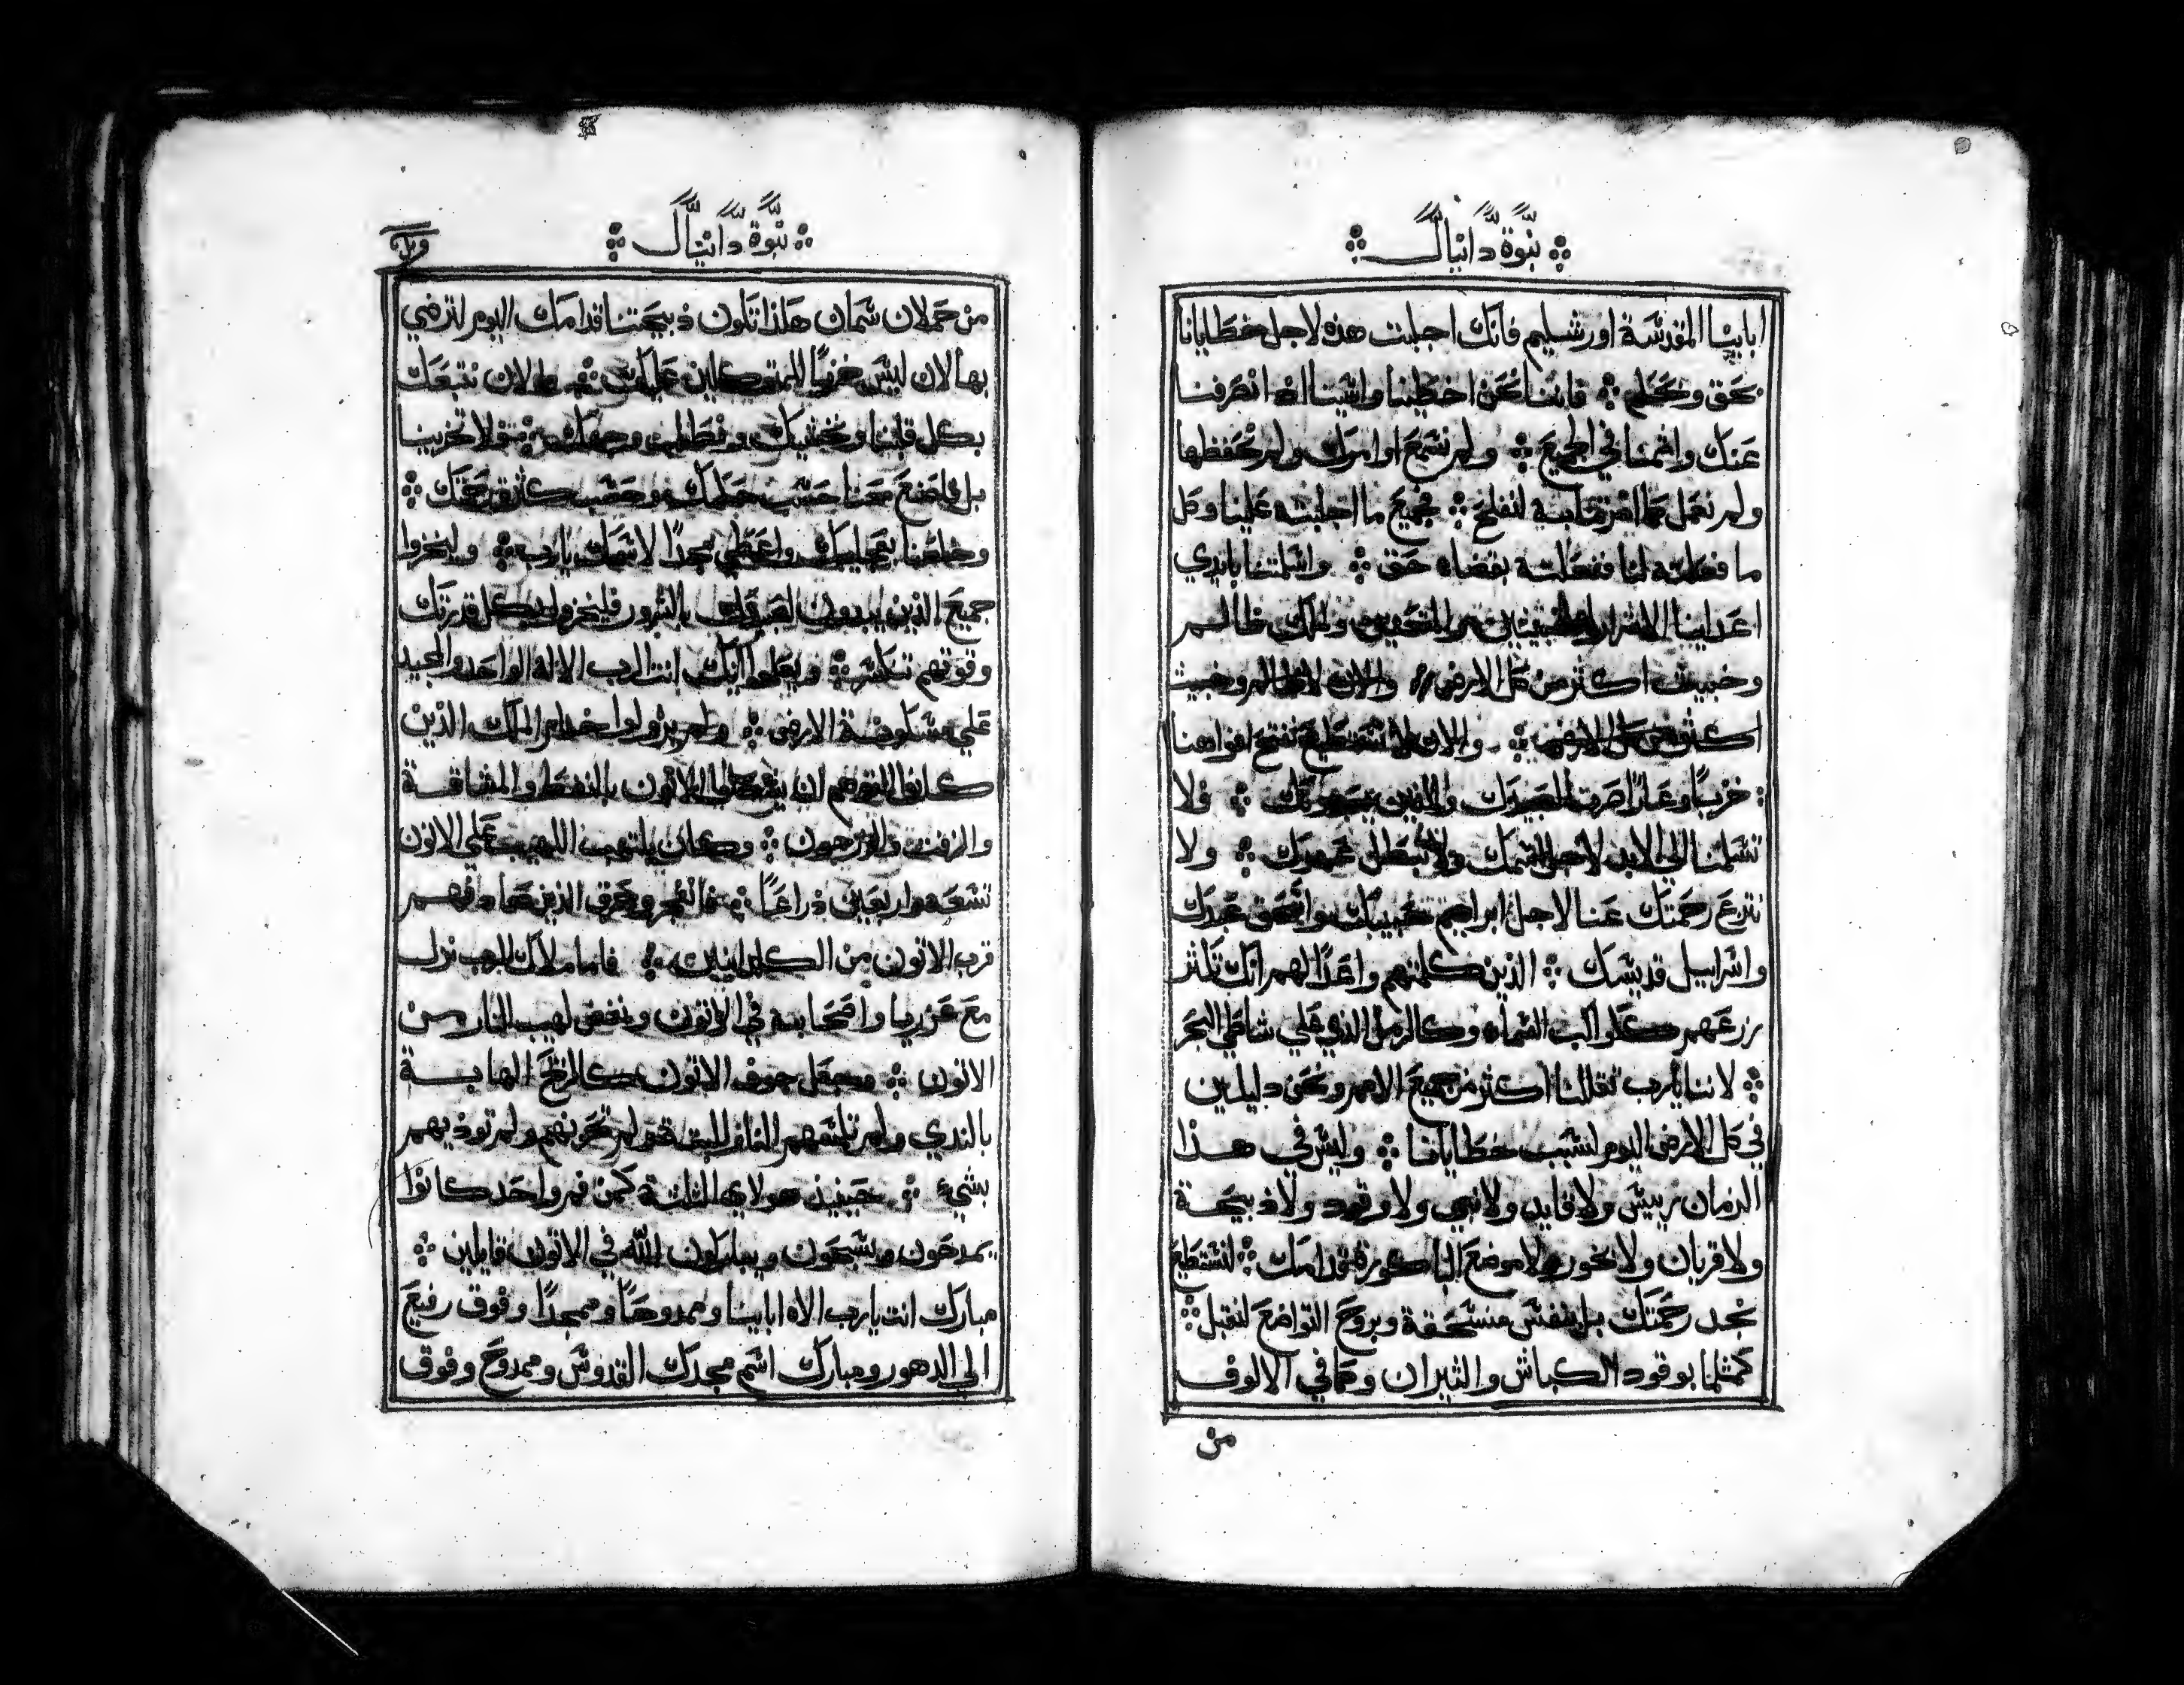 نبوة دانيال
ابايــنا المقدسة اورشليم فانك اجلبت هذه لاجل خطايانا
بحق وبحكم فاننا نحن اخطينا واثمنا اذ انصرفنا
عنك واثمنا في الجميع ولم نسمع اوامرك ولم نحفظها
ولم نعمل كما امرتنا به لنفلح فجميع ما اجلبته علينا وكل
ما فعلته لنا ففعلته بقضاء حق واسلمتنا بايدي
اعداينا الاشرار وملك ظالم
وخبيث اكثر من كل الارض والان ظالم وخبيث
اكثر من كل الارض والان لا نستطيع نفتح افواهنا
خزيا وعارا صرنا لعبيدك والذين يعبدونك فلا
تسلمنا الي الابد لاجل اسمك ولا تبطل عهدك ولا
تنزع رحمتك عنا لاجل ابراهيم حبيبك واسحق عبدك
واسراييل قديسك الذين كلمتهم واعدا لهم انك تكثر
زرعهم ككواكب السماء وكالرمل الذي علي شاطي البحر
لاننا يارب تقللنا اكثر من جميع الامم ونحن دليلين
في كل الارض اليوم لسبب خطايانا وليس في هذا
الزمان رييس ولا قايد ولا نبي ولا وقود ولا ذبيحة
ولا قربان ولا بخور ولا موضع الباكورة قدامك لنستطيع
نجد رحمتك بل بنفس منسحقة وبروح التواضع لنقبل
كمثلما بوقود الكباش والثيران وكما في الالوف
من
نبوة دانيال
من حملان سمان هكذا تكون ذبيحتنا قدامك اليوم لترضي
بها لان ليس خزيا للمتوكلين عليك والان نتبعك
بكل قلبنا ونخشيك ونطلب وجهك ولا تخزينا
بل اصنع معنا حسب حلمك وحسب كثرة رحمتك
وخلصنا بعجايبك واعطي مجدا لاسمك يارب وليخزوا
جميع الذين يبدون لعبيدك بالشرور فليخزوا بكل قدرتك
وقوتهم تنكسر ويعلموا انك انت الرب الاله الواحد والمجيد
علي مسكونة الارض ولم يزولوا خدام الملك الذين
كانوا القوهم ان يوقدوا الاتون بالنفط والمشاقة
والزفت والزرجون وكان يلتهب اللهيب علي الاتون
تسعة واربعين ذراعا فانفجر وحرق الذين صادفهم
قرب الاتون من الكلدانيين فاما ملاك الرب نزل
مع عزريا واصحابه في الاتون ونفض لهيب النار من
الاتون وجعل جوف الاتون كالريح الهابة
بالندي ولم تلمسهم النار البتة ولم تحزنهم ولم توذيهم
بشيء حينيذ هولاي الثلثة كمن فم واحد كانوا
يمدحون ويسبحون ويباركون الله في الاتون قايلين
مبارك انت يارب الاه اباينا وممدوحا وممجدا وفوق رفيع
الي الدهور ومبارك اسم مجدك القدوس وممدوح وفوق